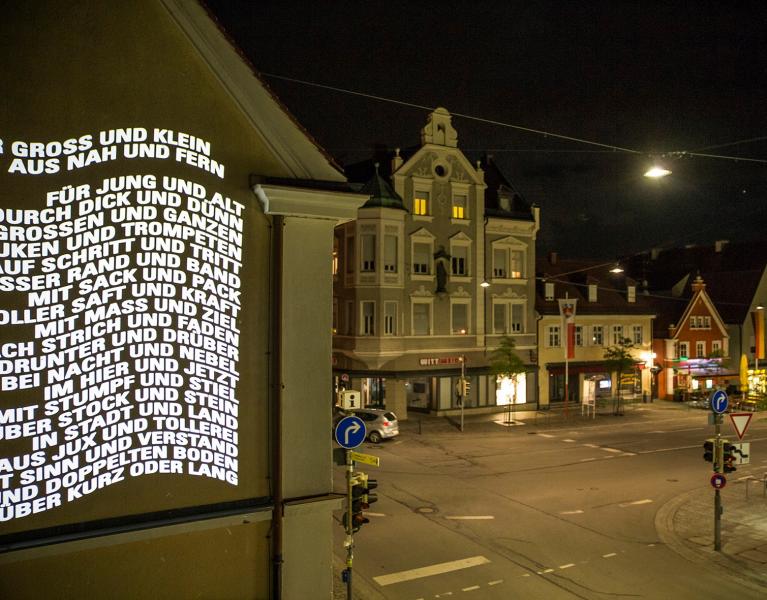 GROSS UND KLEIN
AUS NAH UND FERN
FÜR JUNG UND ALT
DURCH DICK UND DÜNN
GROSSEN UND GANZEN
UND TROMPETEN
AUF SCHRITT UND TRITT
RAND UND BAND
MIT SACK UND PACK
SAFT UND KRAFT
MIT MASS UND ZIEL
STRICH UND FADEN
DRUNTER UND DRÜBER
BEI NACHT UND NEBEL
IM HIER UND JETZT
MIT STUMPF UND STIEL
ÜBER STOCK UND STEIN
IN STADT UND LAND
AUS JUX UND TOLLEREI
SINN UND VERSTAND
UND DOPPELTEN BODEN
ÜBER KURZ ODER LANG